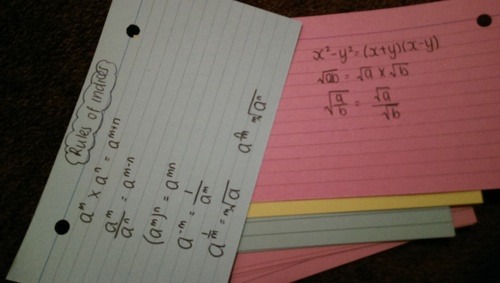 Rules of indices
aᵐ × aⁿ = aᵐ⁺ⁿ
aᵐ/aⁿ = aᵐ⁻ⁿ
(aᵐ)ⁿ = aᵐⁿ
a⁻ᵐ = 1/aᵐ
a^(1/m) = ᵐ√a
a^(n/m) = ᵐ√aⁿ
x² - y² = (x+y)(x-y)
√ab = √a × √b
√(a/b) = √a/√b